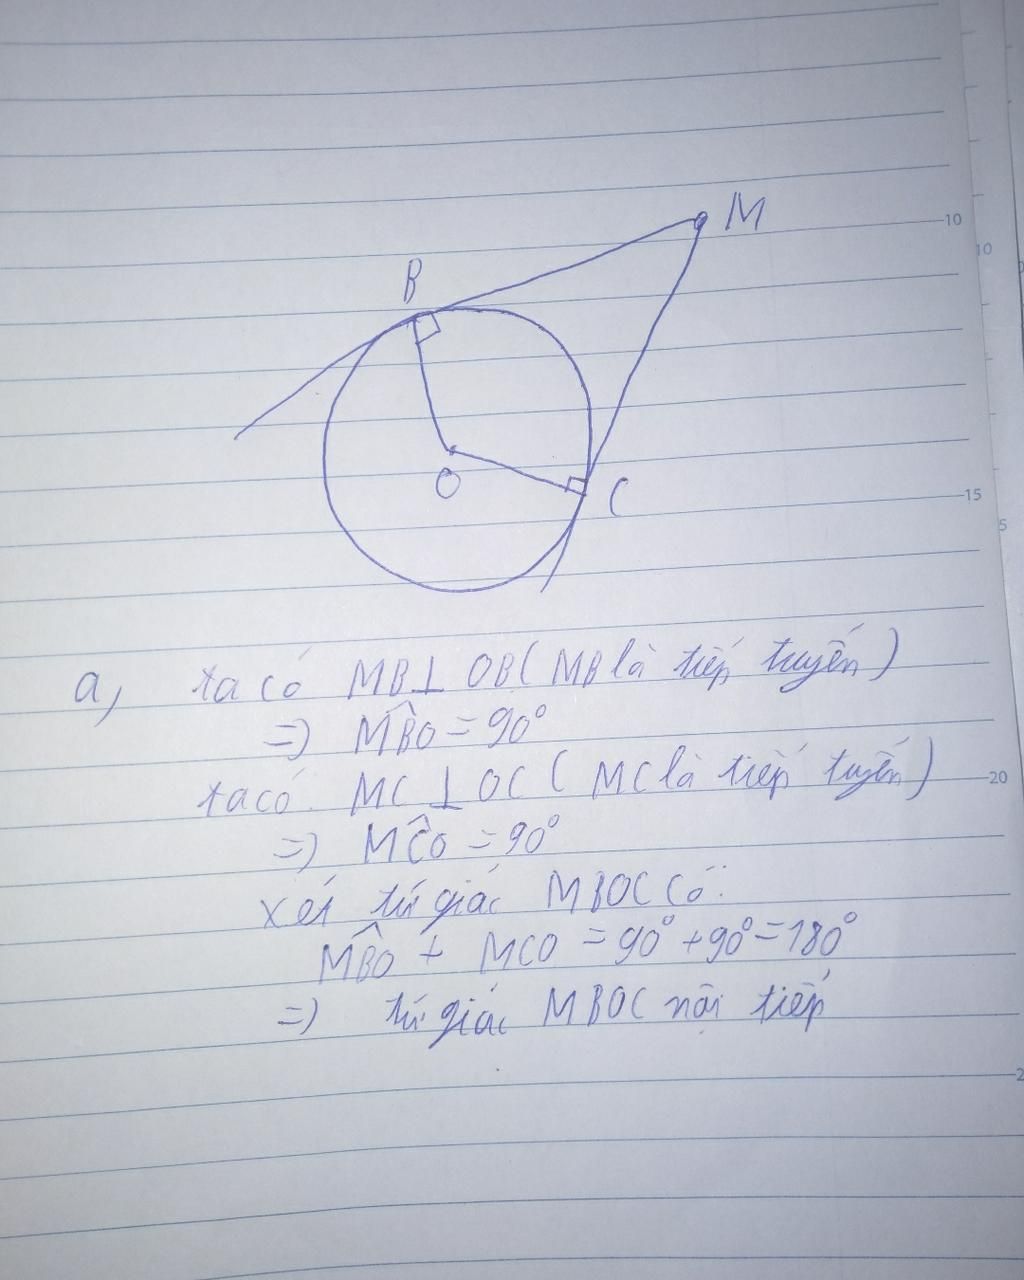 M
10
10
B
O
C
15
5
a, ta có MB⊥ OB ( MB là tiếp tuyến )
=) M\widehat{B}O = 90°
ta có. MC ⊥ OC ( MC là tiếp tuyến )
20
=) M\widehat{C}O = 90°
xét tứ giác MBOC có:
\widehat{MBO} + MCO = 90° + 90° = 180°
=) tứ giác MBOC nội tiếp
2